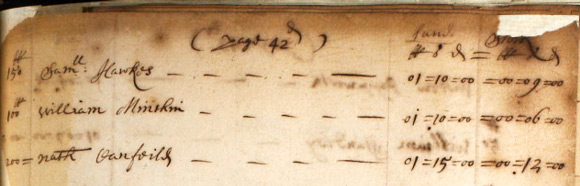 ( page 42 d )
ll s d = ll s d
150 ll Sam ll Hawkes — — — — — 01=10=00 =00=09=00
100 ll William Minskin — — — — — 01=10=00 =00=06=00
200= nath Canfeild — — — — — 01=15=00 =00=12=00